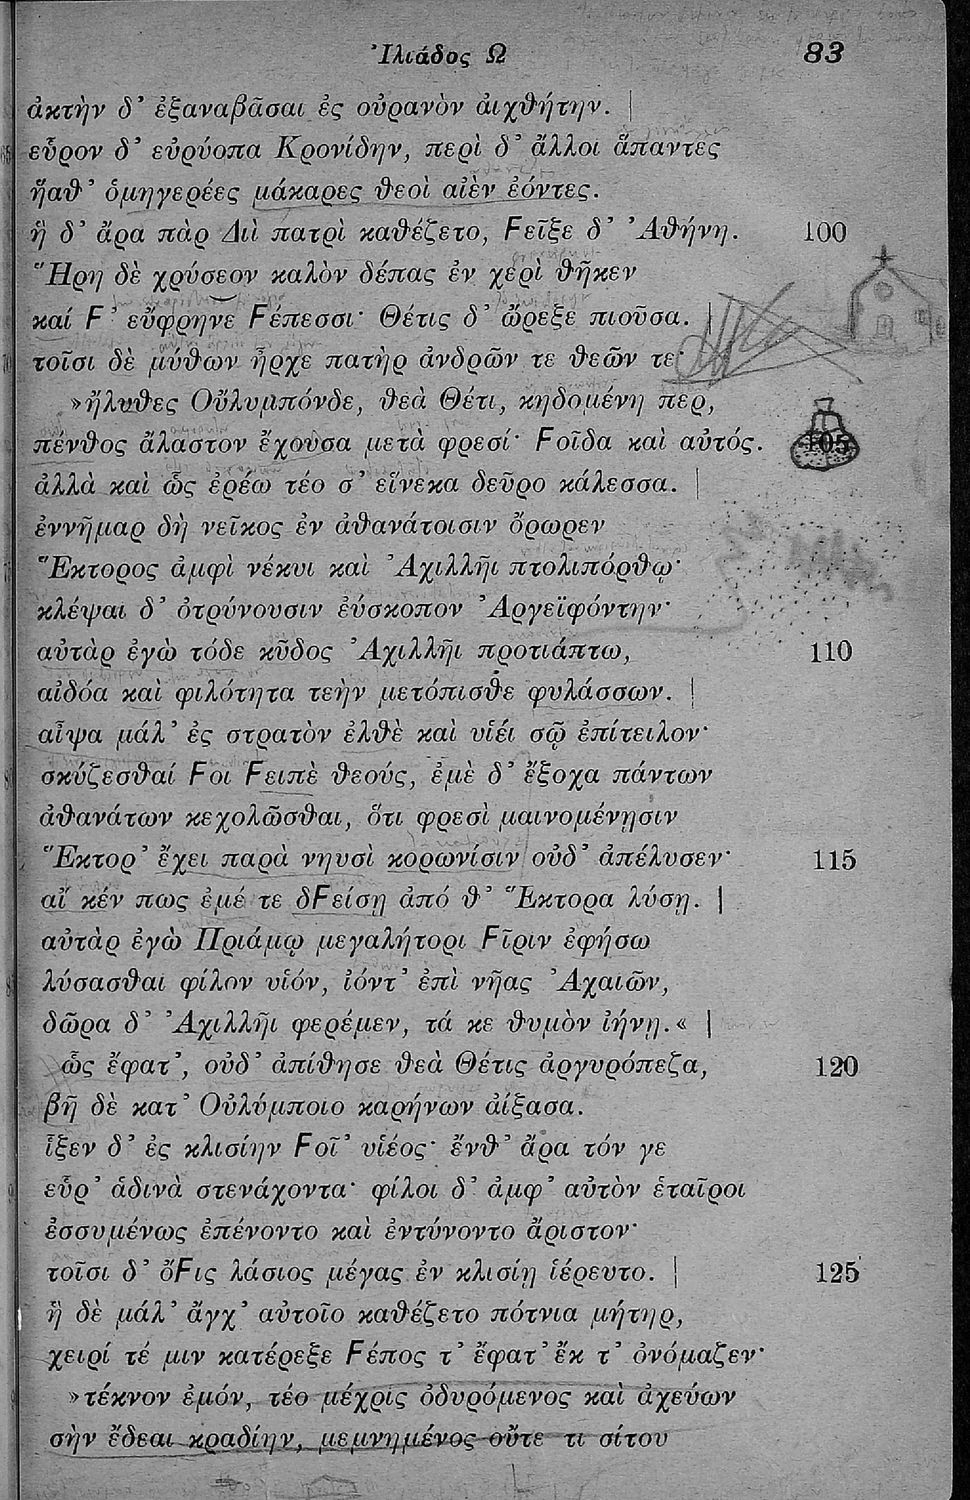 Ἰλιάδος Ω 83
ἀκτὴν δ' ἐξαναβᾶσαι ἐς οὐρανὸν ἀιχθήτην. |
εὗρον δ' εὐρύοπα Κρονίδην, περὶ δ' ἄλλοι ἅπαντες
ἥαθ' ὁμηγερέες μάκαρες θεοὶ αἰὲν ἐόντες.
ἣ δ' ἄρα πὰρ Διὶ πατρὶ καθέζετο, Ϝεῖξε δ' Ἀθήνη. 100
Ἥρη δὲ χρύσεον καλὸν δέπας ἐν χερὶ θῆκεν
καί Ϝ' εὔφρηνε Ϝέπεσσι· Θέτις δ' ὤρεξε πιοῦσα. |
τοῖσι δὲ μύθων ἦρχε πατὴρ ἀνδρῶν τε θεῶν τε·
»ἤλυθες Οὔλυμπόνδε, θεὰ Θέτι, κηδομένη περ,
πένθος ἄλαστον ἔχουσα μετὰ φρεσί· Ϝοῖδα καὶ αὐτός. 105
ἀλλὰ καὶ ὧς ἐρέω τέο σ' εἵνεκα δεῦρο κάλεσσα. |
ἐννῆμαρ δὴ νεῖκος ἐν ἀθανάτοισιν ὄρωρεν
Ἕκτορος ἀμφὶ νέκυι καὶ Ἀχιλλῆι πτολιπόρθῳ·
κλέψαι δ' ὀτρύνουσιν ἐύσκοπον Ἀργεϊφόντην·
αὐτὰρ ἐγὼ τόδε κῦδος Ἀχιλλῆι προτιάπτω, 110
αἰδόα καὶ φιλότητα τεὴν μετόπισθε φυλάσσων. |
αἶψα μάλ' ἐς στρατὸν ἐλθὲ καὶ υἱέι σῷ ἐπίτειλον·
σκύζεσθαί Ϝοι Ϝειπὲ θεούς, ἐμὲ δ' ἔξοχα πάντων
ἀθανάτων κεχολῶσθαι, ὅτι φρεσὶ μαινομένῃσιν
Ἕκτορ' ἔχει παρὰ νηυσὶ κορωνίσιν οὐδ' ἀπέλυσεν· 115
αἴ κέν πως ἐμέ τε δϜείσῃ ἀπό θ' Ἕκτορα λύσῃ. |
αὐτὰρ ἐγὼ Πριάμῳ μεγαλήτορι Ϝῖριν ἐφήσω
λύσασθαι φίλον υἱόν, ἰόντ' ἐπὶ νῆας Ἀχαιῶν,
δῶρα δ' Ἀχιλλῆι φερέμεν, τά κε θυμὸν ἰήνῃ.« |
ὧς ἔφατ', οὐδ' ἀπίθησε θεὰ Θέτις ἀργυρόπεζα, 120
βῆ δὲ κατ' Οὐλύμποιο καρήνων ἀίξασα.
ἷξεν δ' ἐς κλισίην Ϝοῖ' υἱέος· ἔνθ' ἄρα τόν γε
εὗρ' ἁδινὰ στενάχοντα· φίλοι δ' ἀμφ' αὐτὸν ἑταῖροι
ἐσσυμένως ἐπένοντο καὶ ἐντύνοντο ἄριστον·
τοῖσι δ' ὄϜις λάσιος μέγας ἐν κλισίῃ ἱέρευτο. | 125
ἣ δὲ μάλ' ἄγχ' αὐτοῖο καθέζετο πότνια μήτηρ,
χειρί τέ μιν κατέρεξε Ϝέπος τ' ἔφατ' ἔκ τ' ὀνόμαζεν·
»τέκνον ἐμόν, τέο μέχρις ὀδυρόμενος καὶ ἀχεύων
σὴν ἔδεαι κραδίην, μεμνημένος οὔτε τι σίτου